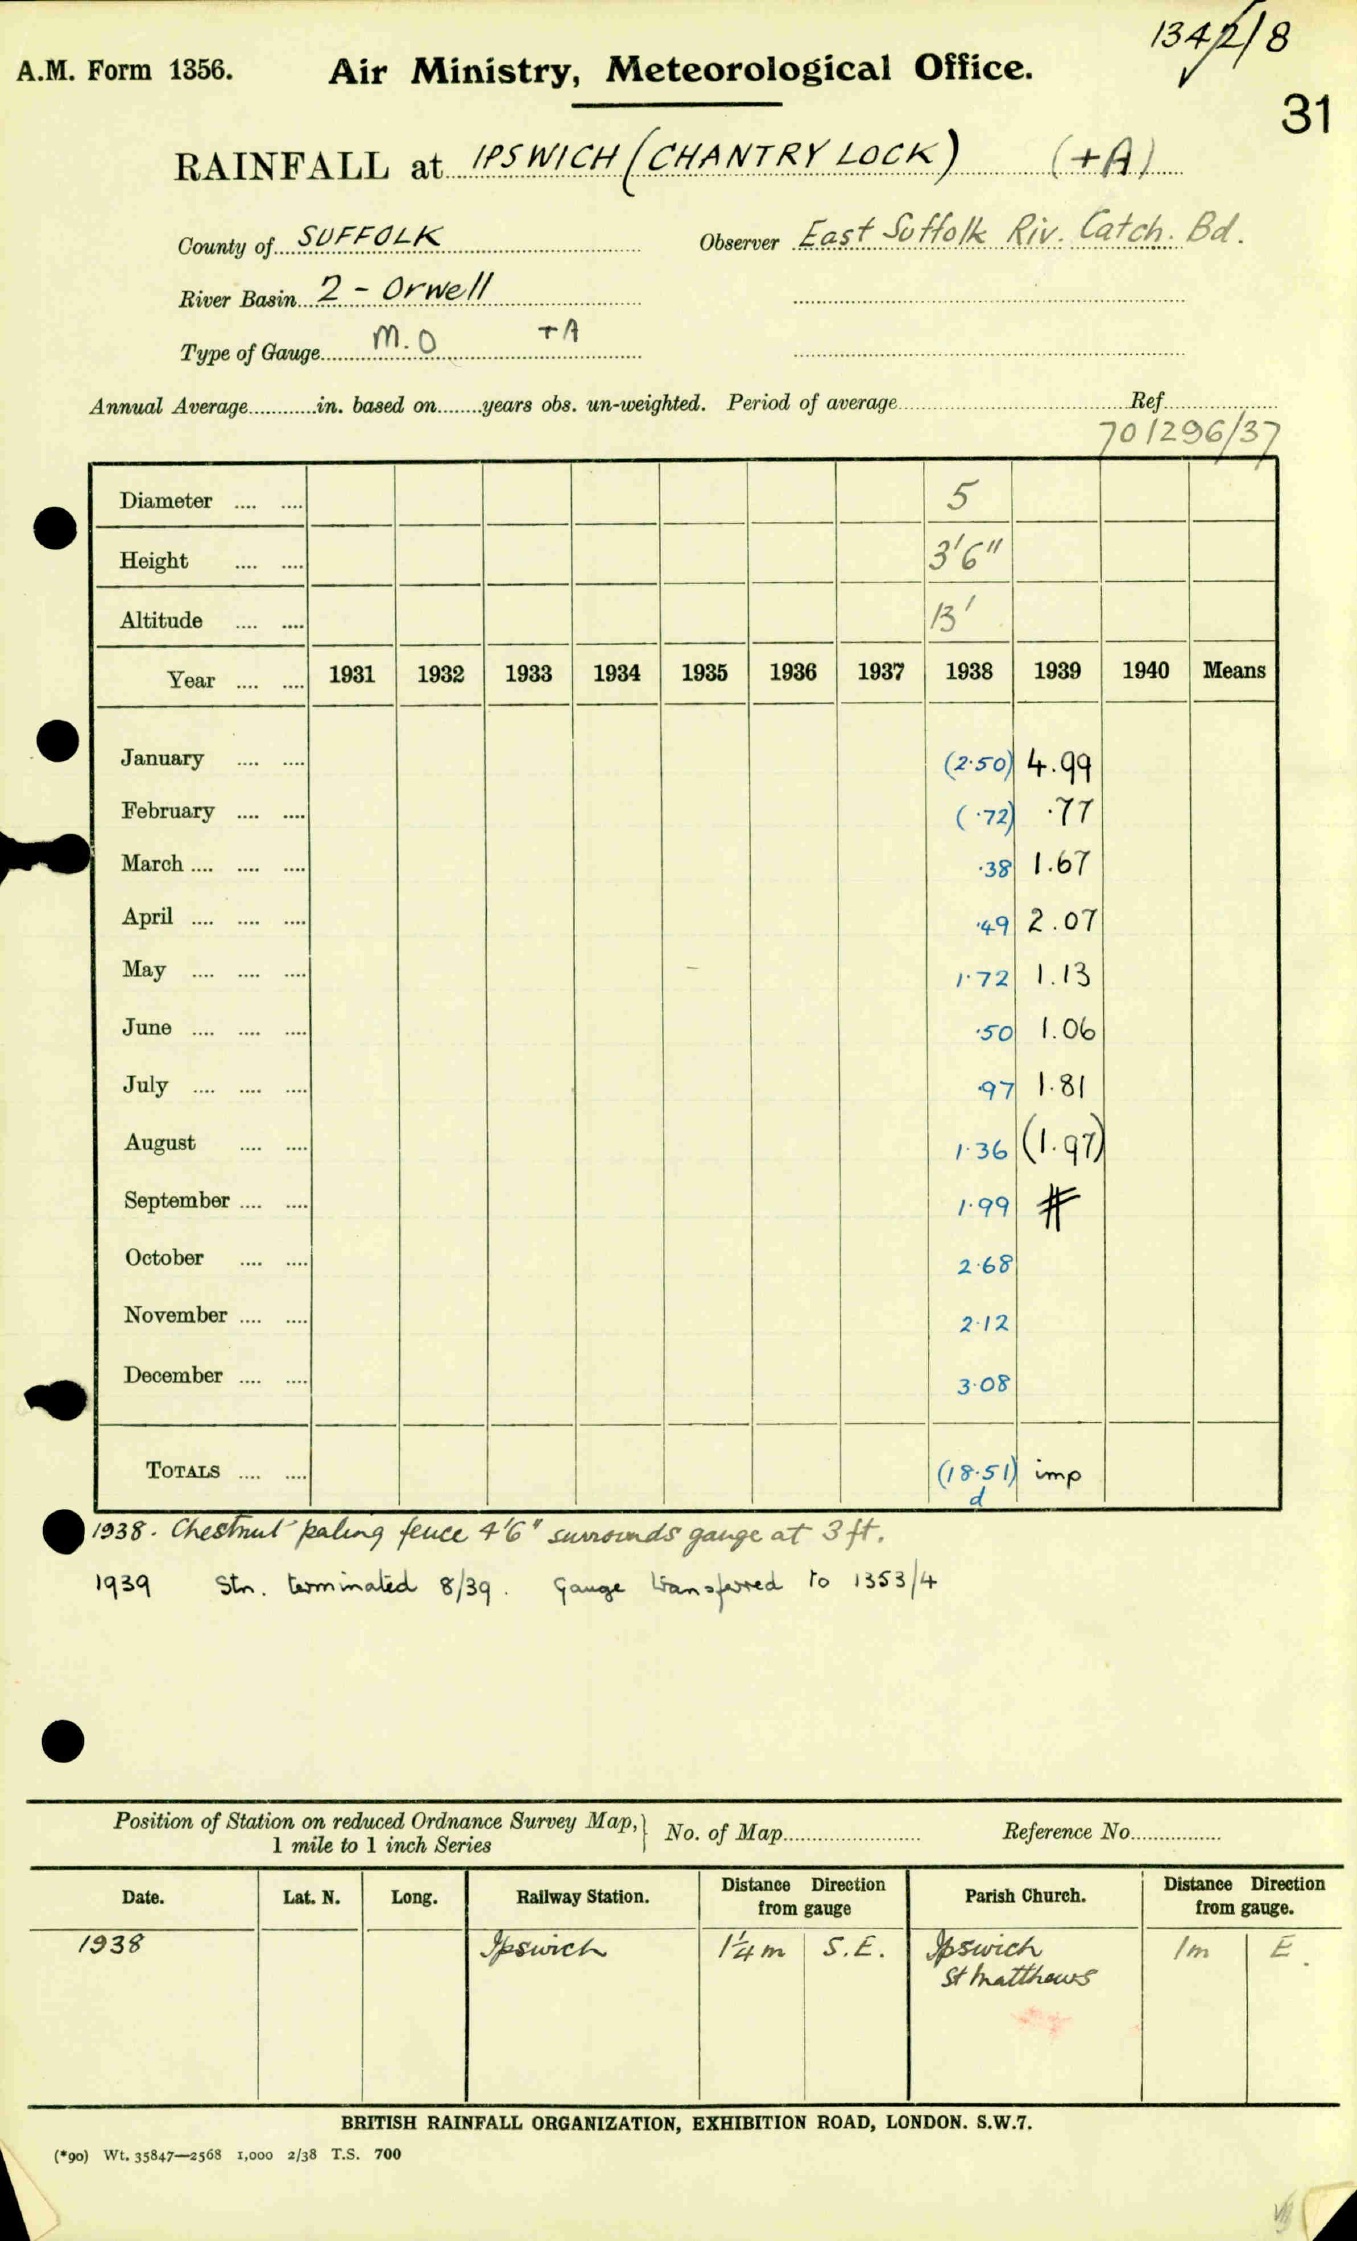 1342/8
A.M. Form 1356. Air Ministry, Meteorological Office.
31
RAINFALL at IPSWICH (CHANTRY LOCK) (+A)
County of SUFFOLK Observer East Suffolk Riv. Catch. Bd.
River Basin 2 - Orwell
Type of Gauge M.O +A
Annual Average in. based on years obs. un-weighted. Period of average Ref
701296/37
Diameter 5
Height 3'6"
Altitude 13'
Year 1931 1932 1933 1934 1935 1936 1937 1938 1939 1940 Means
January (2.50) 4.99
February (.72) .77
March .38 1.67
April .49 2.07
May 1.72 1.13
June .50 1.06
July .97 1.81
August 1.36 (1.97)
September 1.99 #
October 2.68
November 2.12
December 3.08
TOTALS (18.51) imp
d
1938. Chestnut paling fence 4'6" surrounds gauge at 3 ft.
1939 Stn. terminated 8/39. Gauge transferred to 1353/4
Position of Station on reduced Ordnance Survey Map, } No. of Map Reference No.
1 mile to 1 inch Series
Date. Lat. N. Long. Railway Station. Distance Direction from gauge Parish Church. Distance Direction from gauge.
1938 Ipswich 1¼m S.E. Ipswich 1m E.
St Matthews
BRITISH RAINFALL ORGANIZATION, EXHIBITION ROAD, LONDON. S.W.7.
(*90) Wt. 35847—2568 1,000 2/38 T.S. 700